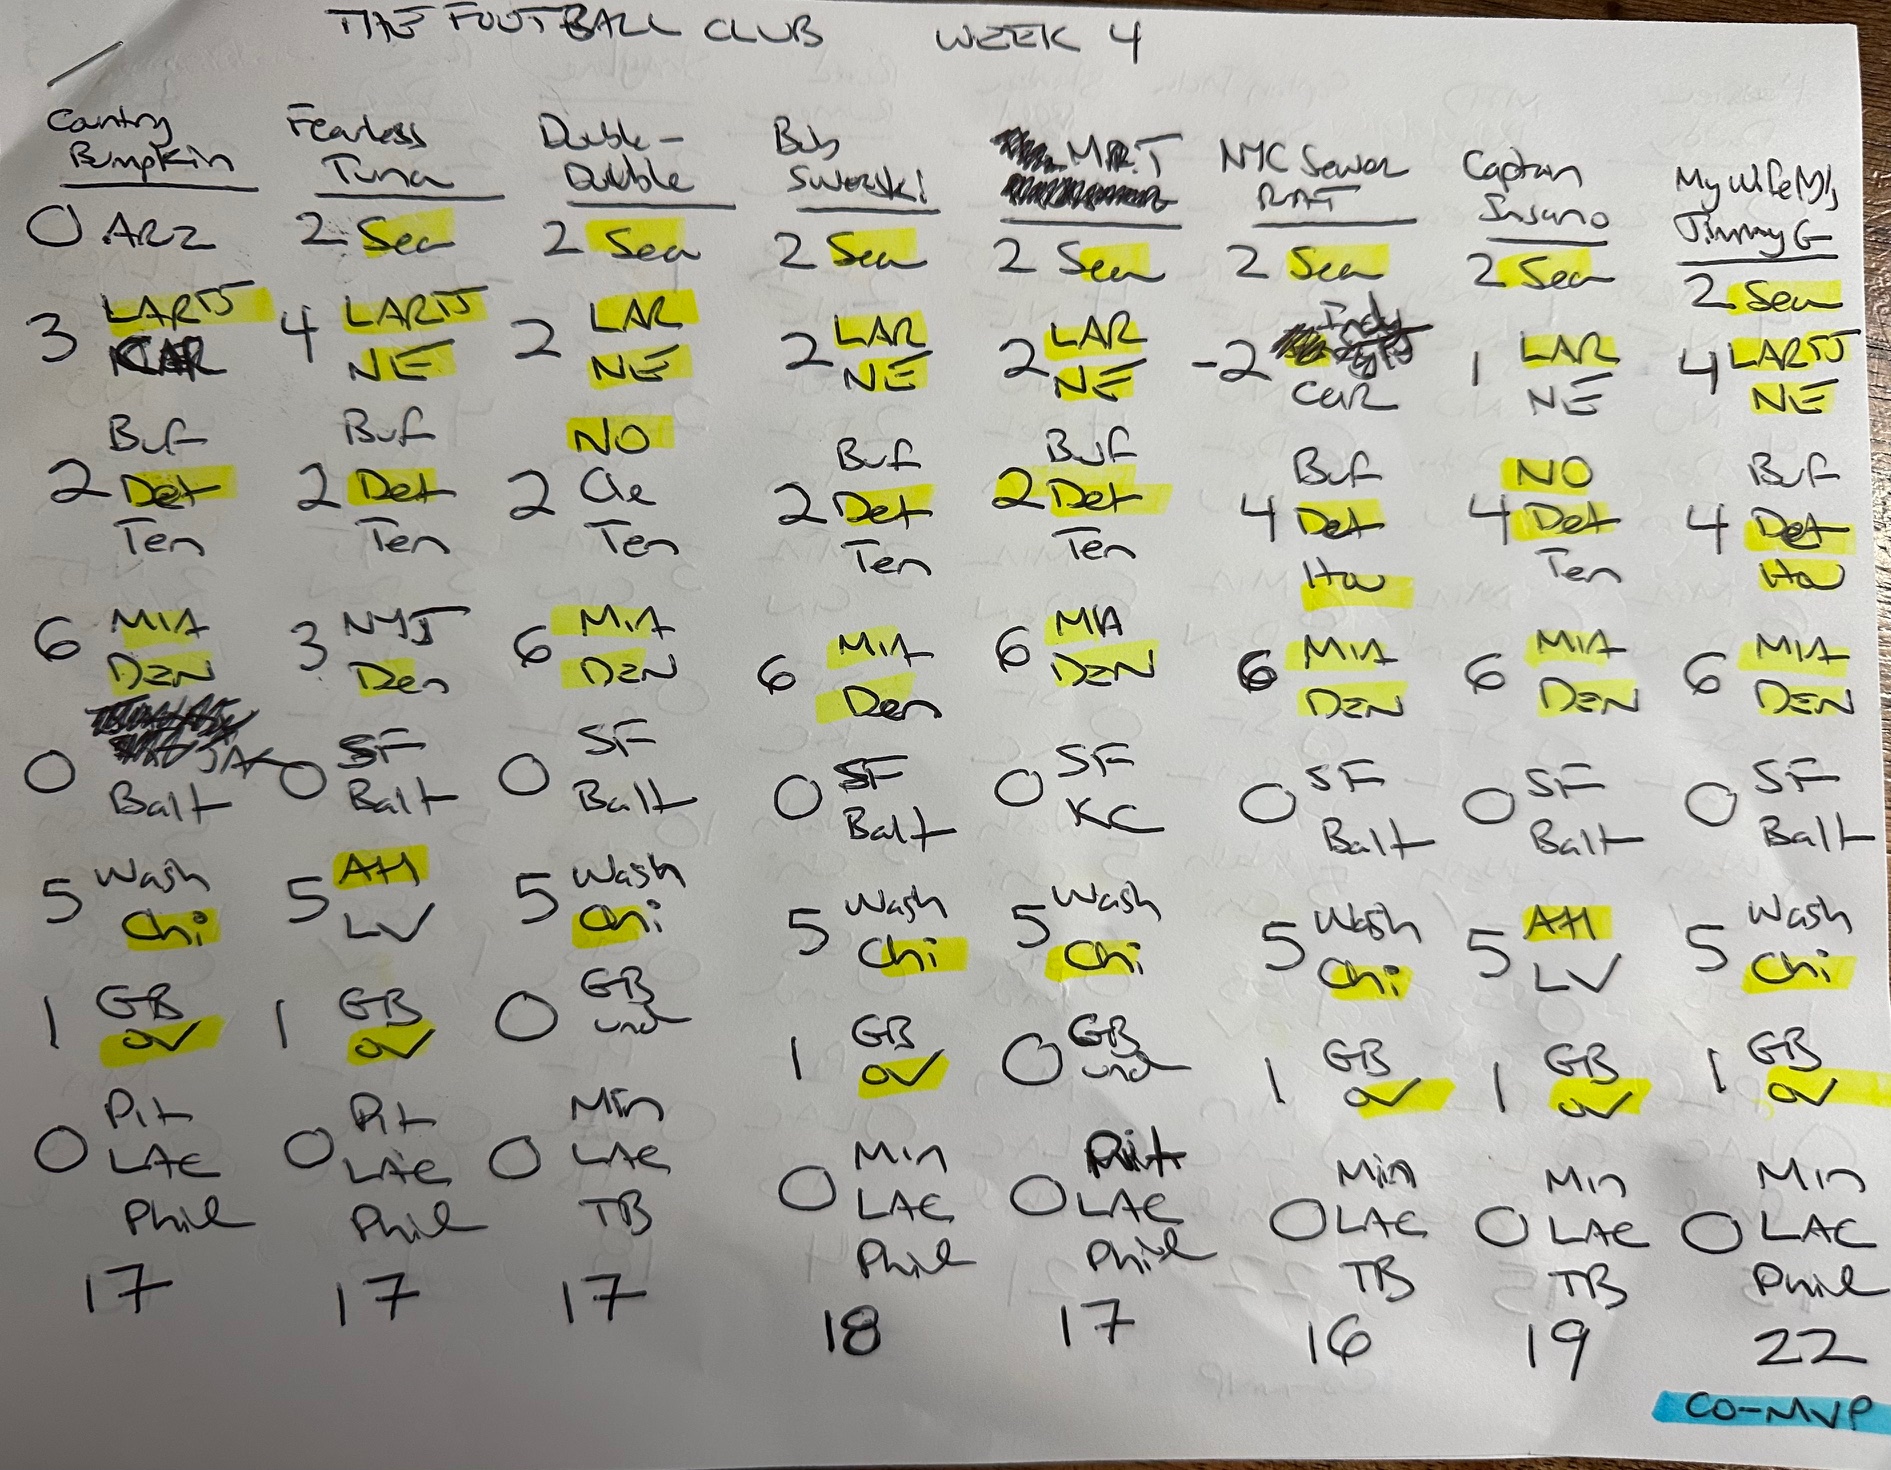 THE FOOTBALL CLUB WEEK 4
Country Bumpkin
0 ARZ
3 LARTJ
CAR
Buf
2 Det
Ten
6 MIA
DEN
JAX
0 Balt
5 Wash
Chi
1 GB
OV
Pit
0 LAC
Phil
17
Fearless Tuna
2 Sea
4 LARTJ
NE
Buf
2 Det
Ten
3 NYJ
Den
0 SF
Balt
5 Atl
LV
1 GB
OV
Pit
0 LAC
Phil
17
Double-Double
2 Sea
2 LAR
NE
NO
2 Cle
Ten
6 MIA
DEN
0 SF
Balt
5 Wash
Chi
0 GB
und
Min
0 LAC
TB
17
Bob Swerski
2 Sea
2 LAR
NE
Buf
2 Det
Ten
6 MIA
Den
0 SF
Balt
5 Wash
Chi
1 GB
OV
Min
0 LAC
Phil
18
MR.T
2 Sea
2 LAR
NE
Buf
2 Det
Ten
6 MIA
DEN
0 SF
KC
5 Wash
Chi
0 GB
und
Pitt
0 LAC
Phil
17
NYC Sewer RAT
2 Sea
-2 Indy
Car
Buf
4 Det
Hou
6 MIA
DEN
0 SF
Balt
5 Wash
Chi
1 GB
OV
Min
0 LAC
TB
16
Captain Insano
2 Sea
1 LAR
NE
NO
4 Det
Ten
6 MIA
DEN
0 SF
Balt
5 Atl
LV
1 GB
OV
Min
0 LAC
TB
19
My Wife
Jimmy G
2 Sea
4 LARTJ
NE
Buf
4 Det
Hou
6 MIA
DEN
0 SF
Balt
5 Wash
Chi
1 GB
OV
Min
0 LAC
Phil
22
CO-MVP